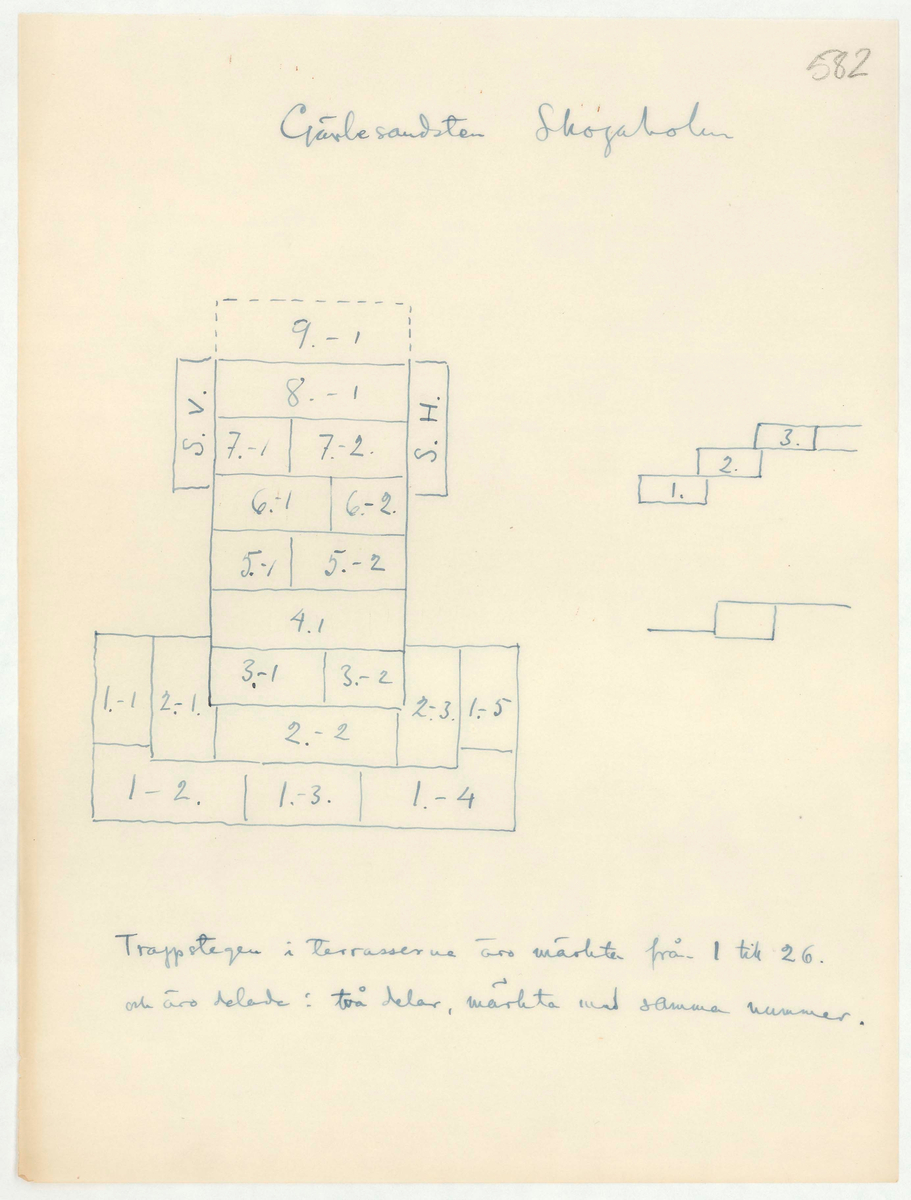 582
Gävlesandsten Skogaholm
9.-1
8.-1
S.V.
S.H.
7.-1 7.-2.
6.-1 6.-2.
5.-1 5.-2
4.1
3.-1 3.-2
1.-1 2.-1. 2-3. 1.-5
2.-2
1-2. 1.-3. 1.-4
3.
2.
1.
Trappstegen i terrasserna äro märkta från 1 till 26.
och äro delade i två delar, märkta med samma nummer.